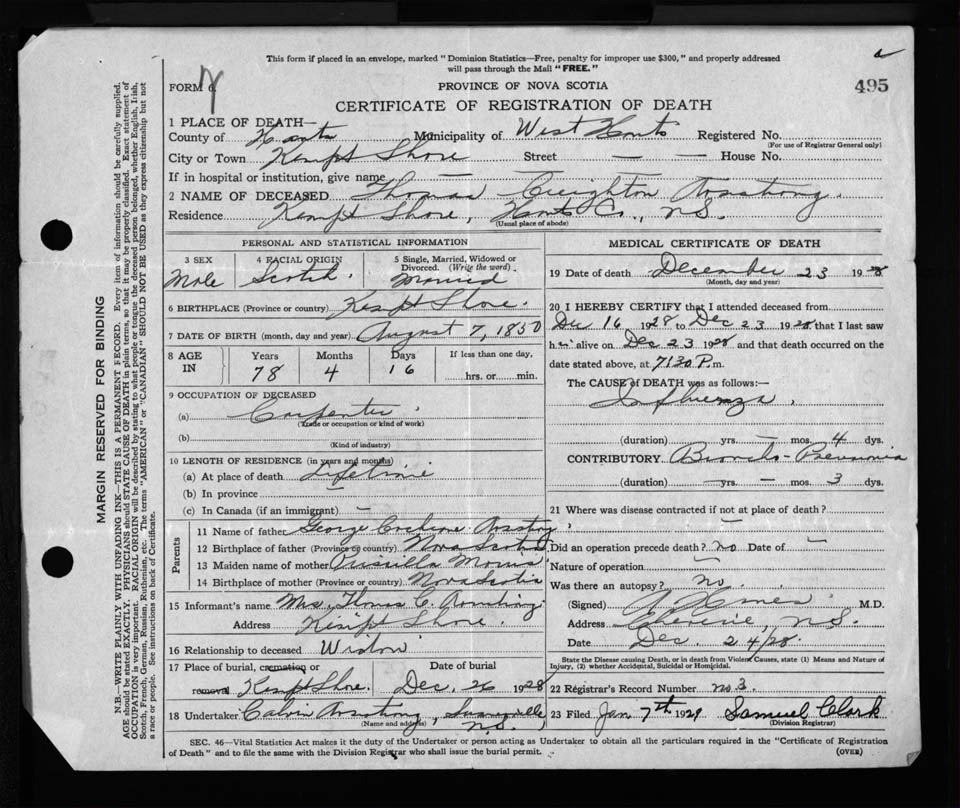 This form if placed in an envelope, marked "Dominion Statistics—Free, penalty for improper use $300," and properly addressed
will pass through the Mail "FREE."
FORM 6
PROVINCE OF NOVA SCOTIA
495
CERTIFICATE OF REGISTRATION OF DEATH
1 PLACE OF DEATH—
County of Hants Municipality of West Hants Registered No.
(For use of Registrar General only)
City or Town Kempt Shore Street — — House No.
If in hospital or institution, give name —
2 NAME OF DECEASED Thomas Creighton Armstrong
Residence Kempt Shore, Hants Co., N.S.
(Usual place of abode)
PERSONAL AND STATISTICAL INFORMATION
3 SEX 4 RACIAL ORIGIN 5 Single, Married, Widowed or
Divorced. (Write the word)
Male Scotch. Married
6 BIRTHPLACE (Province or country) Kempt Shore.
7 DATE OF BIRTH (month, day and year) August 7, 1850
8 AGE IN Years Months Days If less than one day,
78 4 16 hrs. or min.
9 OCCUPATION OF DECEASED
(a) Carpenter
(Trade or occupation or kind of work)
(b)
(Kind of industry)
10 LENGTH OF RESIDENCE (in years and months)
(a) At place of death Lifetime
(b) In province —
(c) In Canada (if an immigrant) —
Parents
11 Name of father George Armstrong
12 Birthplace of father (Province or country) Nova Scotia
13 Maiden name of mother Priscilla
14 Birthplace of mother (Province or country) Nova Scotia
15 Informant's name Mrs. Thomas C. Armstrong
Address Kempt Shore.
16 Relationship to deceased Widow
17 Place of burial, cremation or Date of burial
removal Kempt Shore. Dec. 26 1928
18 Undertaker Calvin Armstrong,
N.S.
(Name and address)
MEDICAL CERTIFICATE OF DEATH
19 Date of death December 23 1928
(Month, day and year)
20 I HEREBY CERTIFY that I attended deceased from
Dec 16 1928 to Dec 23 1928 that I last saw
h im alive on Dec 23 1928 and that death occurred on the
date stated above, at 7:30 P. m.
The CAUSE of DEATH was as follows:—
Influenza,
(duration) yrs. — mos. 4 dys.
CONTRIBUTORY Broncho-Pneumonia
(duration) — yrs. — mos. 3 dys.
21 Where was disease contracted if not at place of death?
—
Did an operation precede death? no Date of —
Nature of operation —
Was there an autopsy? no.
(Signed) M.D.
Address N.S.
Date Dec. 24/28.
State the Disease causing Death, or in death from Violent Causes, state (1) Means and Nature of
Injury, (2) whether Accidental, Suicidal or Homicidal.
22 Registrar's Record Number no 3.
23 Filed Jan 7th 1929 Samuel Clark
(Division Registrar)
SEC. 46—Vital Statistics Act makes it the duty of the Undertaker or person acting as Undertaker to obtain all the particulars required in the "Certificate of Registration
of Death" and to file the same with the Division Registrar who shall issue the burial permit.
(OVER)
MARGIN RESERVED FOR BINDING
N.B.—WRITE PLAINLY WITH UNFADING INK—THIS IS A PERMANENT RECORD. Every item of information should be carefully supplied.
AGE should be stated EXACTLY. PHYSICIANS should STATE CAUSE OF DEATH in plain terms, so that it may be properly classified. Exact statement of
OCCUPATION is very important. RACIAL ORIGIN will be described by stating to what people or tongue the deceased person belonged, whether English, Irish,
Scotch, French, German, Russian, Ruthenian, etc. The terms "AMERICAN" or "CANADIAN" SHOULD NOT BE USED as they express citizenship but not
a race or people. See instructions on back of Certificate.